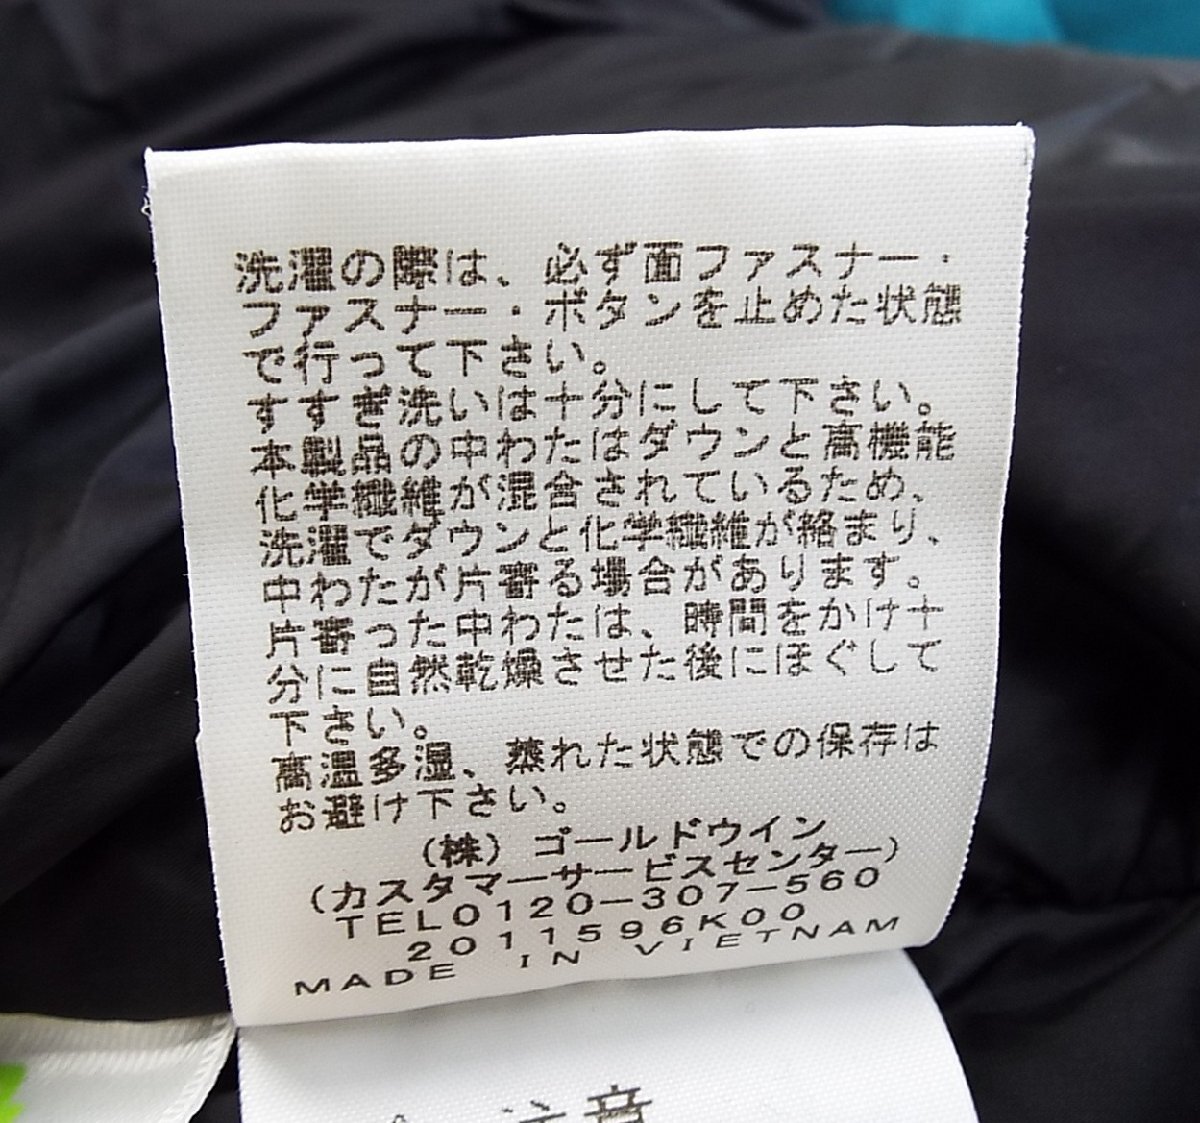 洗濯の際は、必ず面ファスナー・
ファスナー・ボタンを止めた状態
で行って下さい。
すすぎ洗いは十分にして下さい。
本製品の中わたはダウンと高機能
化学繊維が混合されているため、
洗濯でダウンと化学繊維が絡まり、
中わたが片寄る場合があります。
片寄った中わたは、時間をかけ十
分に自然乾燥させた後にほぐして
下さい。
高温多湿、蒸れた状態での保存は
お避け下さい。
(株)ゴールドウイン
(カスタマーサービスセンター)
TEL0120-307-560
2011596K00
MADE IN VIETNAM
注意